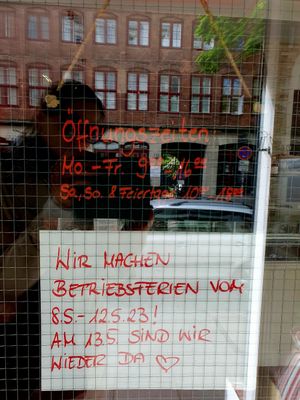 Öffnungszeiten
Mo.-Fr. 9⁰⁰-16⁰⁰
Sa, So, & Feiertag 10⁰⁰-18⁰⁰
WIR MACHEN
BETRIEBSFERIEN VOM
8.5.-12.5.23!
AM 13.5 SIND WIR
WIEDER DA ♡